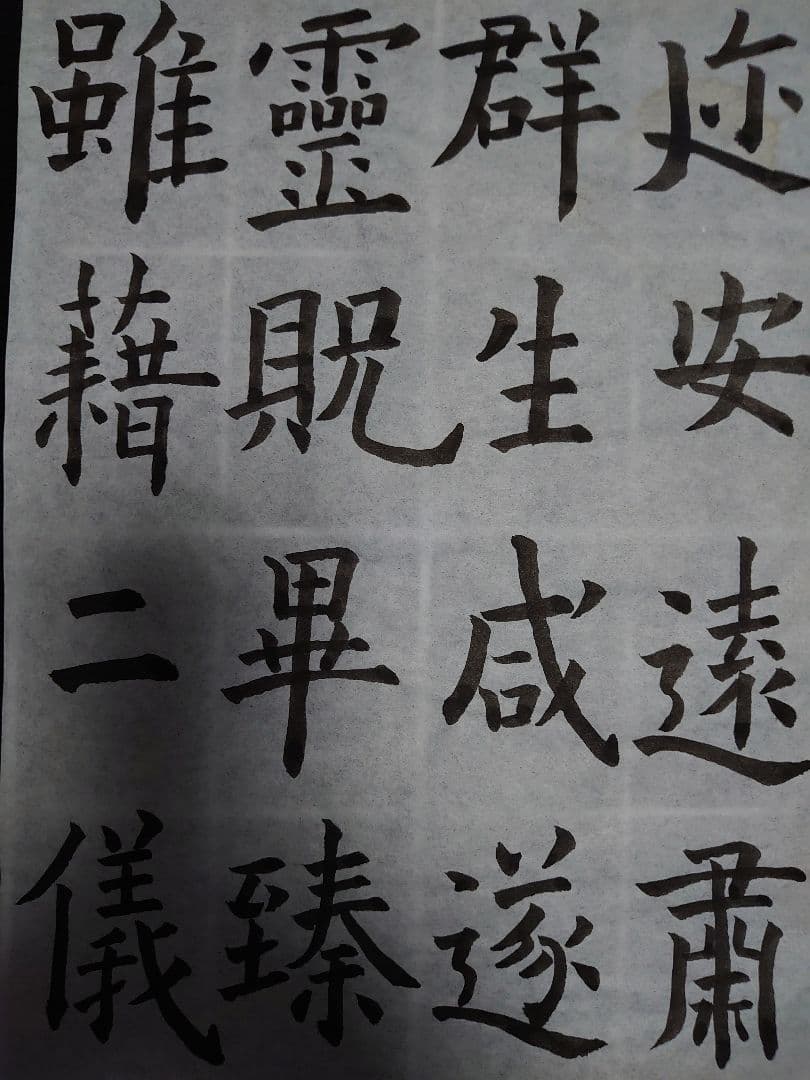 迩安遠肅
群生咸遂
靈貺畢臻
雖藉二儀